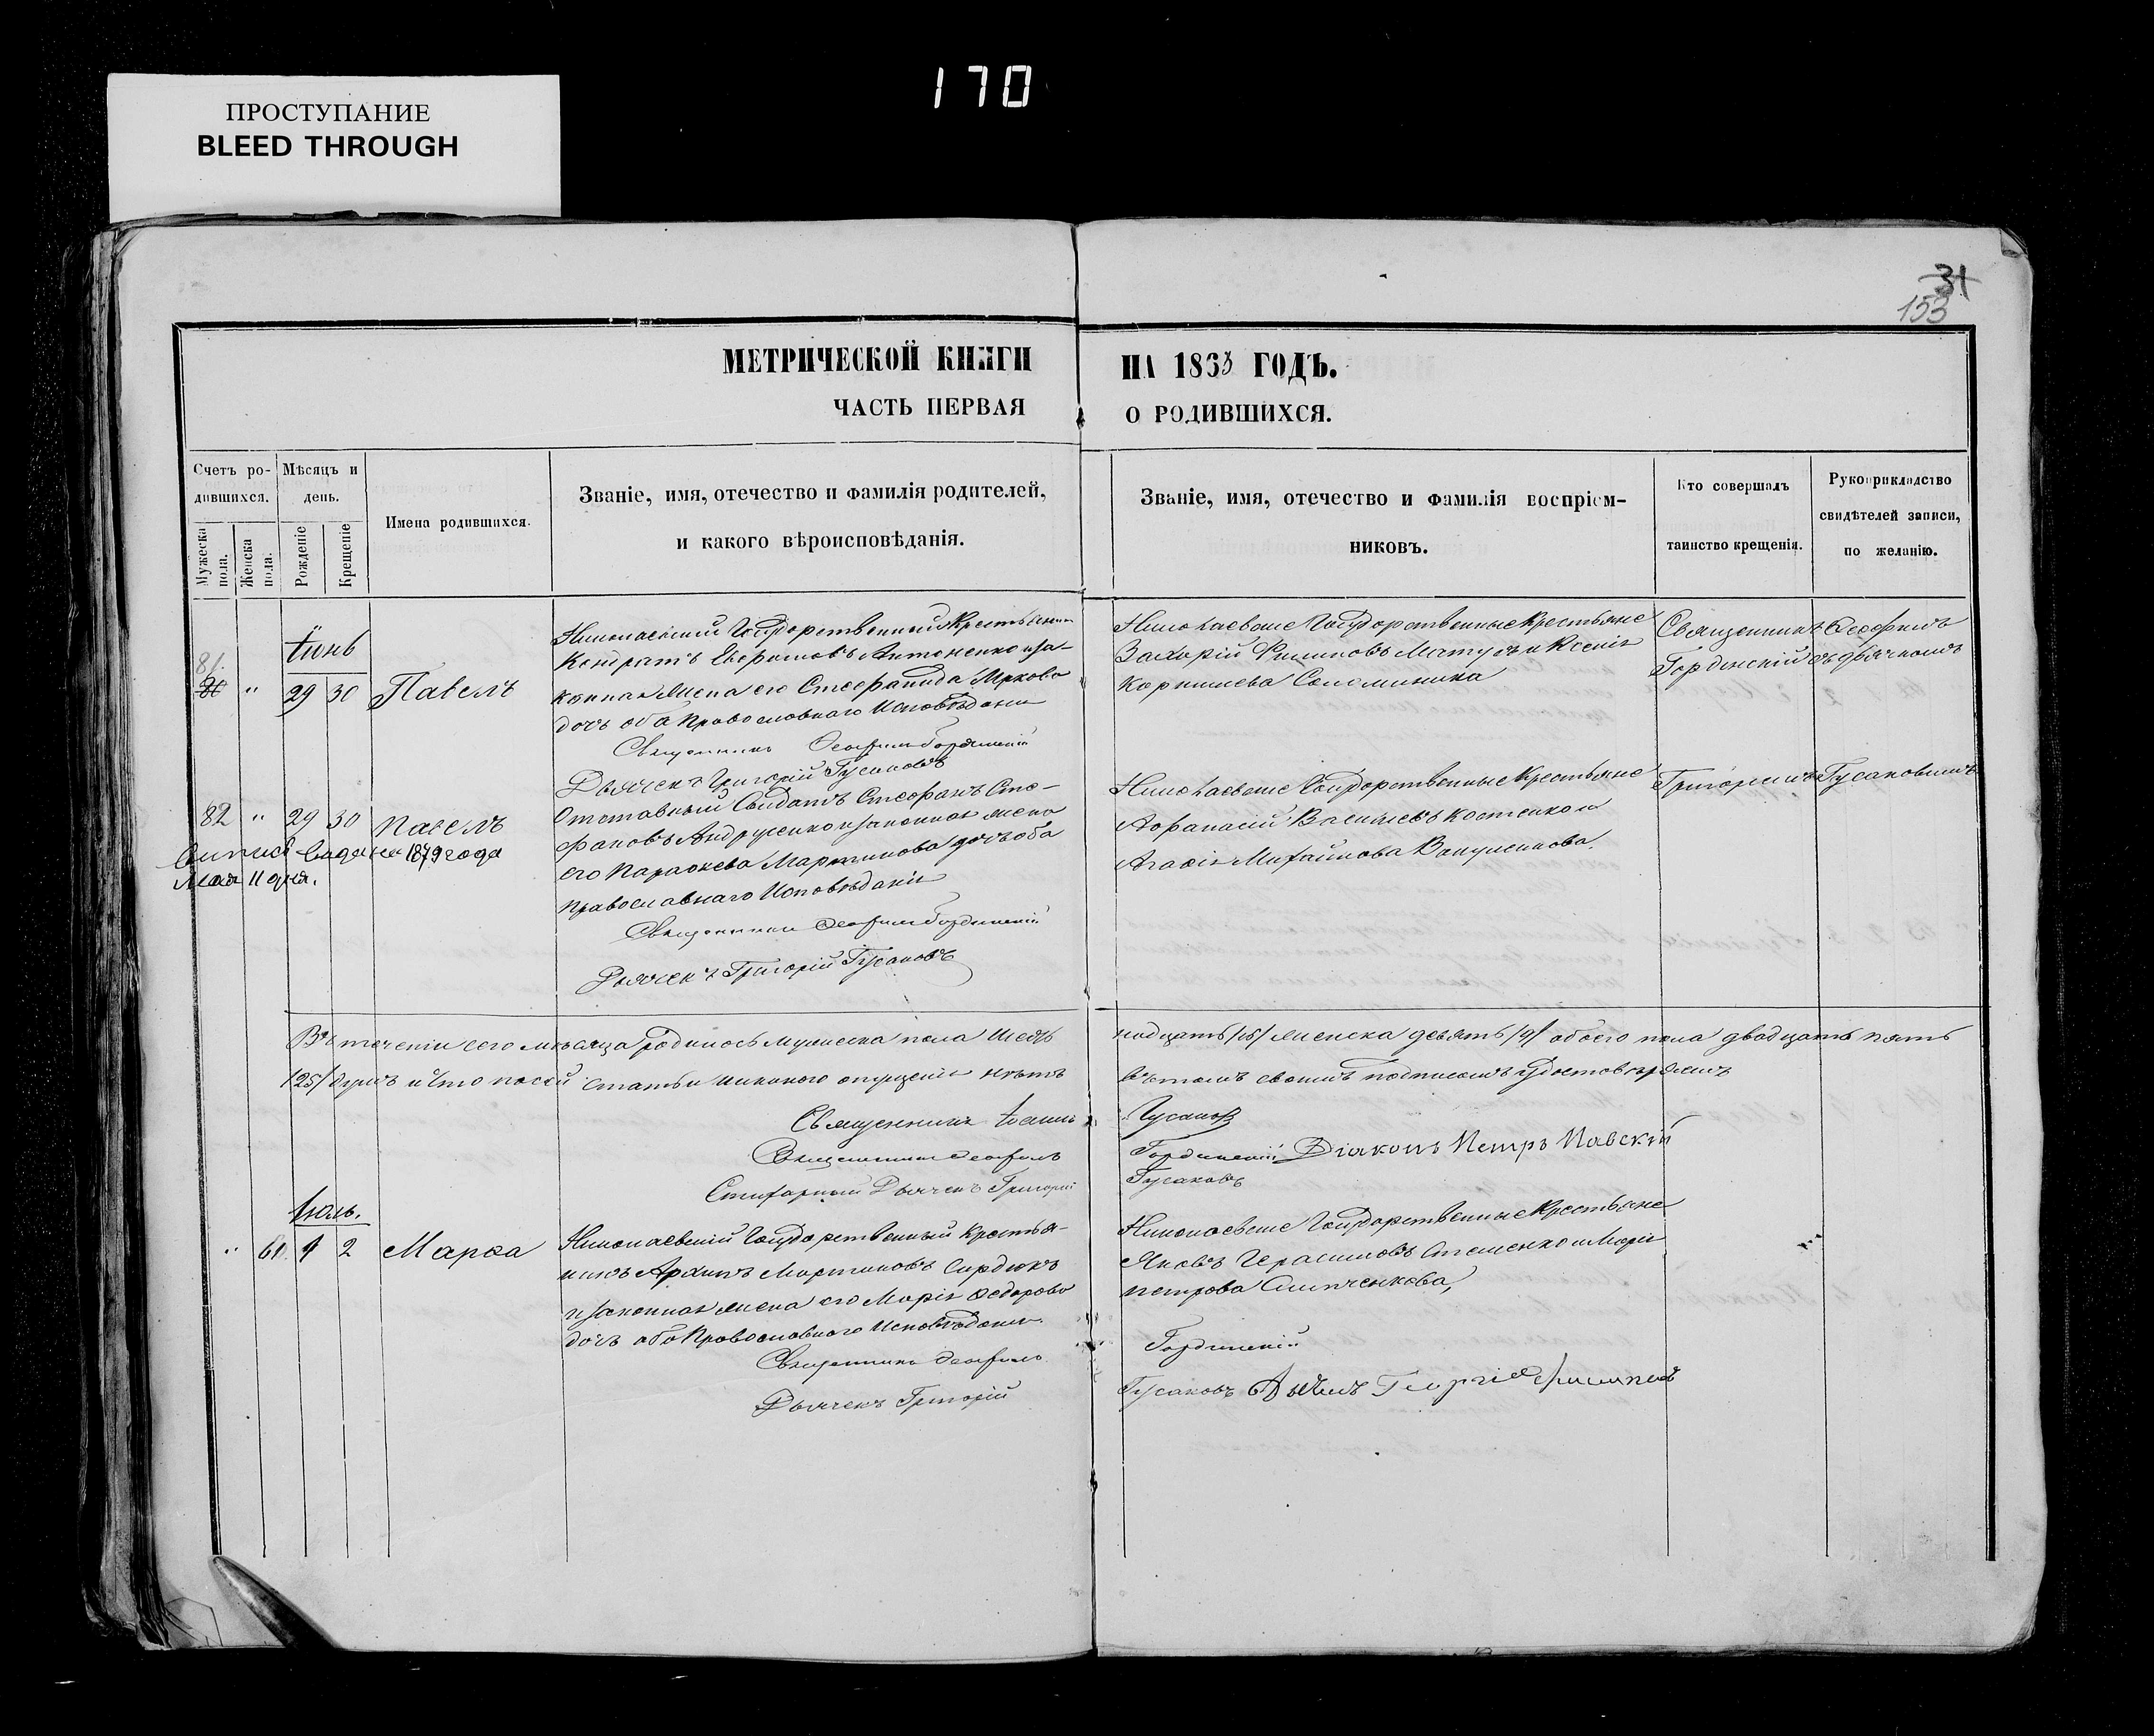 170
ПРОСТУПАНИЕ
BLEED THROUGH
31
153
МЕТРИЧЕСКОЙ КНИГИ НА 1863 ГОДЪ.
ЧАСТЬ ПЕРВАЯ О РОДИВШИХСЯ.
Счетъ ро-
дившихся.
Мужеска пола.
Женска пола.
Мѣсяцъ и
день.
Рожденіе
Крещеніе
Имена родившихся.
Званіе, имя, отечество и фамилія родителей,
и какого вѣроисповѣданія.
Званіе, имя, отечество и фамилія воспріем-
никовъ.
Кто совершалъ
таинство крещенія.
Рукоприкладство
свидѣтелей записи,
по желанію.
Іюнь
81.
80 " 29 30 Павелъ
Николаевскій Государственный Крестьянинъ
Кондратъ Евфимовъ Антоненко и за-
конная жена его Стефанида Маркова
дочь оба Православнаго Исповѣданія
Священникъ Ѳеофилъ Гординскій
Дьячекъ Григорій Гусаковъ
Николаевские Государственные Крестьяне
Захарій Филиповъ и Ксенія
Корнилиева
Священникъ Ѳеофилъ
Гординскій съ дьячкомъ
Григоріемъ Гусаковымъ
82 " 29 30 Павелъ
Выпись выдана 1879 года
мая 11 дня.
Отставный Солдатъ Стефанъ Сте-
фановъ Андрусенко и законная жена
его Параскева Мартинова дочь оба
Православнаго Исповѣданія
Священникъ Ѳеофилъ Гординскій
Дьячекъ Григорій Гусаковъ
Николаевские Государственные Крестьяне
Афанасій Васильевъ Костенко и
Агафія Михайлова Вакуленкова.
Въ теченіи сего мѣсяца родилось мужеска пола шест надцать /16/ женска девять /9/ обоего пола двадцать пять
/25/ душъ и что по сей статьи никакого опущенія нѣтъ въ томъ своимъ подписомъ удостовѣряемъ
Священникъ Іоаннъ Гусаковъ
Священникъ Ѳеофилъ Гординскій Діаконъ Петръ Павскій
Стихарный Дьячекъ Григорій Гусаковъ
Іюль.
" 61. 1 2 Марѳа
Николаевскій Государственный Крестья-
нинъ Архипъ Мартиновъ Сердюкъ
и законная жена его Марія Ѳедорова
дочь оба Православнаго Исповѣданія.
Священникъ Ѳеофилъ Гординскій
Дьячекъ Григорій Гусаковъ
Николаевские Государственные Крестьяне
Яковъ Герасимовъ Стешенко и Марія
Петрова